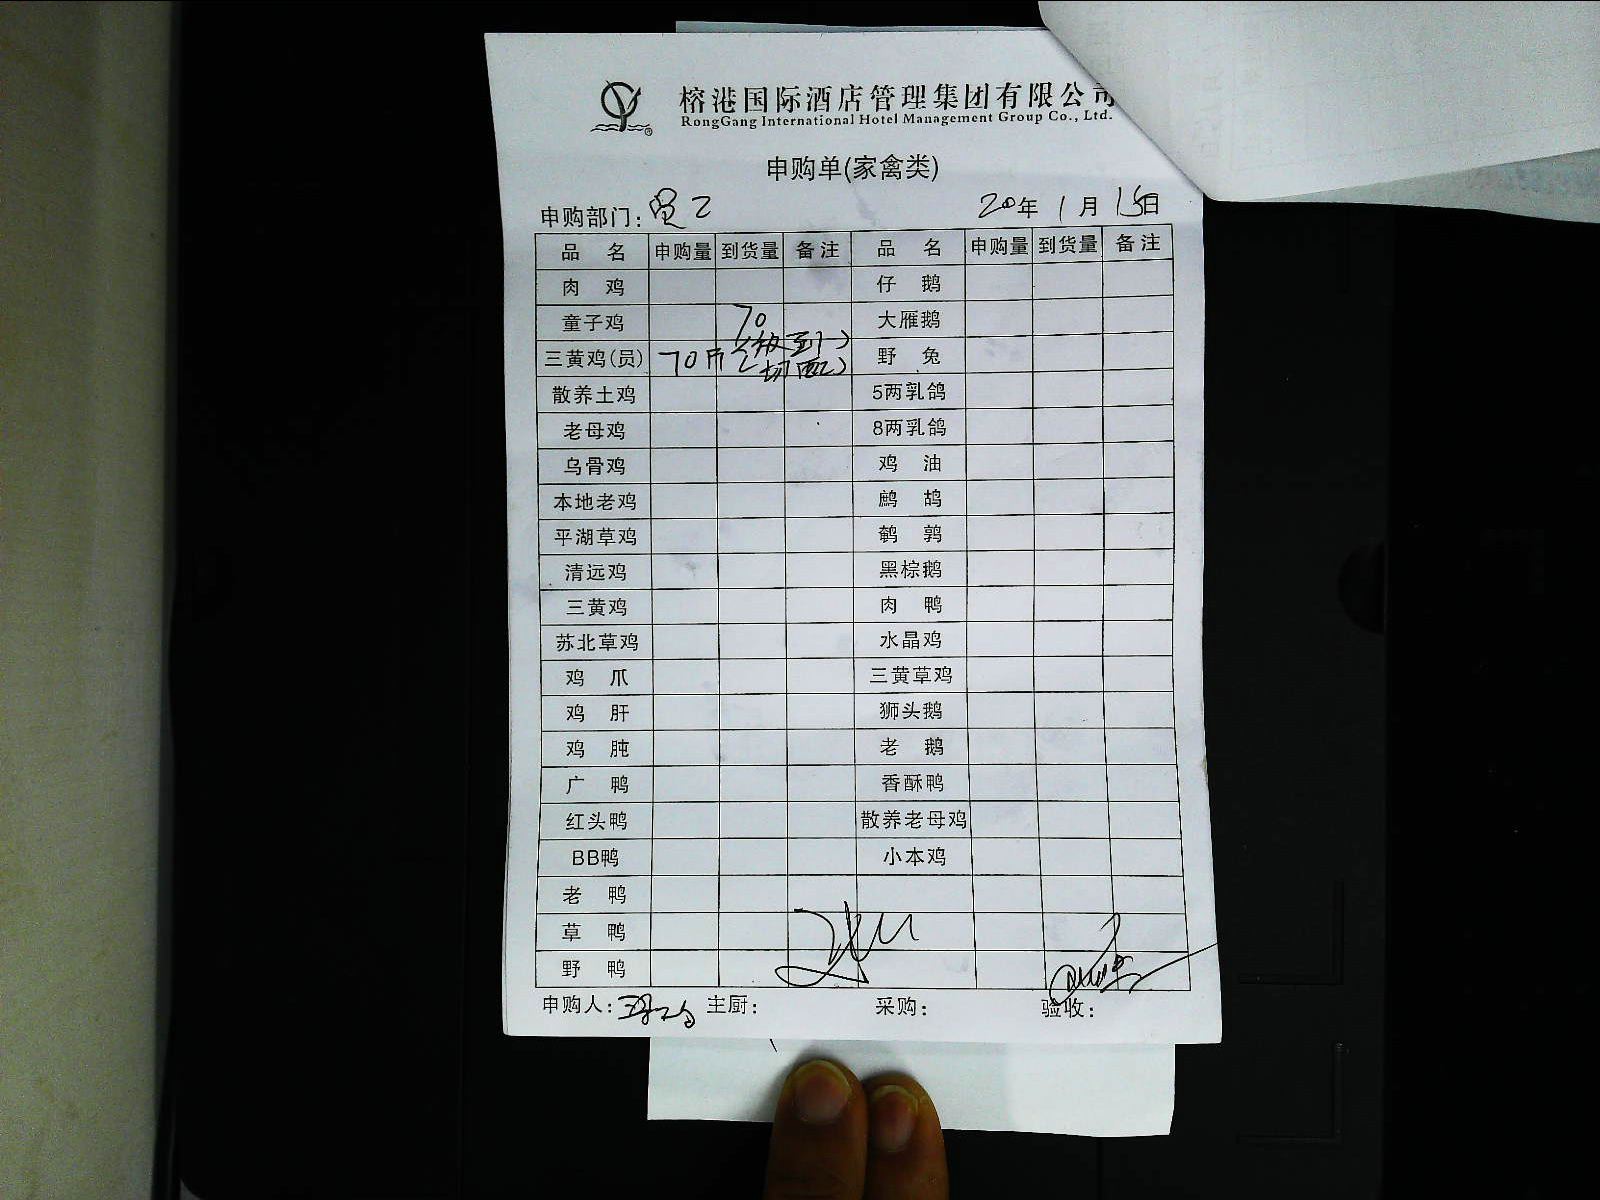 榕港国际酒店管理集团有限公司
RongGang International Hotel Management Group Co., Ltd.
申购单(家禽类)
申购部门: 20年 1月 15日
品 名 申购量 到货量 备注 品 名 申购量 到货量 备注
肉 鸡 仔 鹅
童子鸡 70 大雁鹅
三黄鸡(员) 70 切配) 野 兔
散养土鸡 5两乳鸽
老母鸡 8两乳鸽
乌骨鸡 鸡 油
本地老鸡 鹧 鸪
平湖草鸡 鹌 鹑
清远鸡 黑棕鹅
三黄鸡 肉 鸭
苏北草鸡 水晶鸡
鸡 爪 三黄草鸡
鸡 肝 狮头鹅
鸡 肫 老 鹅
广 鸭 香酥鸭
红头鸭 散养老母鸡
BB鸭 小本鸡
老 鸭
草 鸭
野 鸭
申购人: 主厨: 采购: 验收: